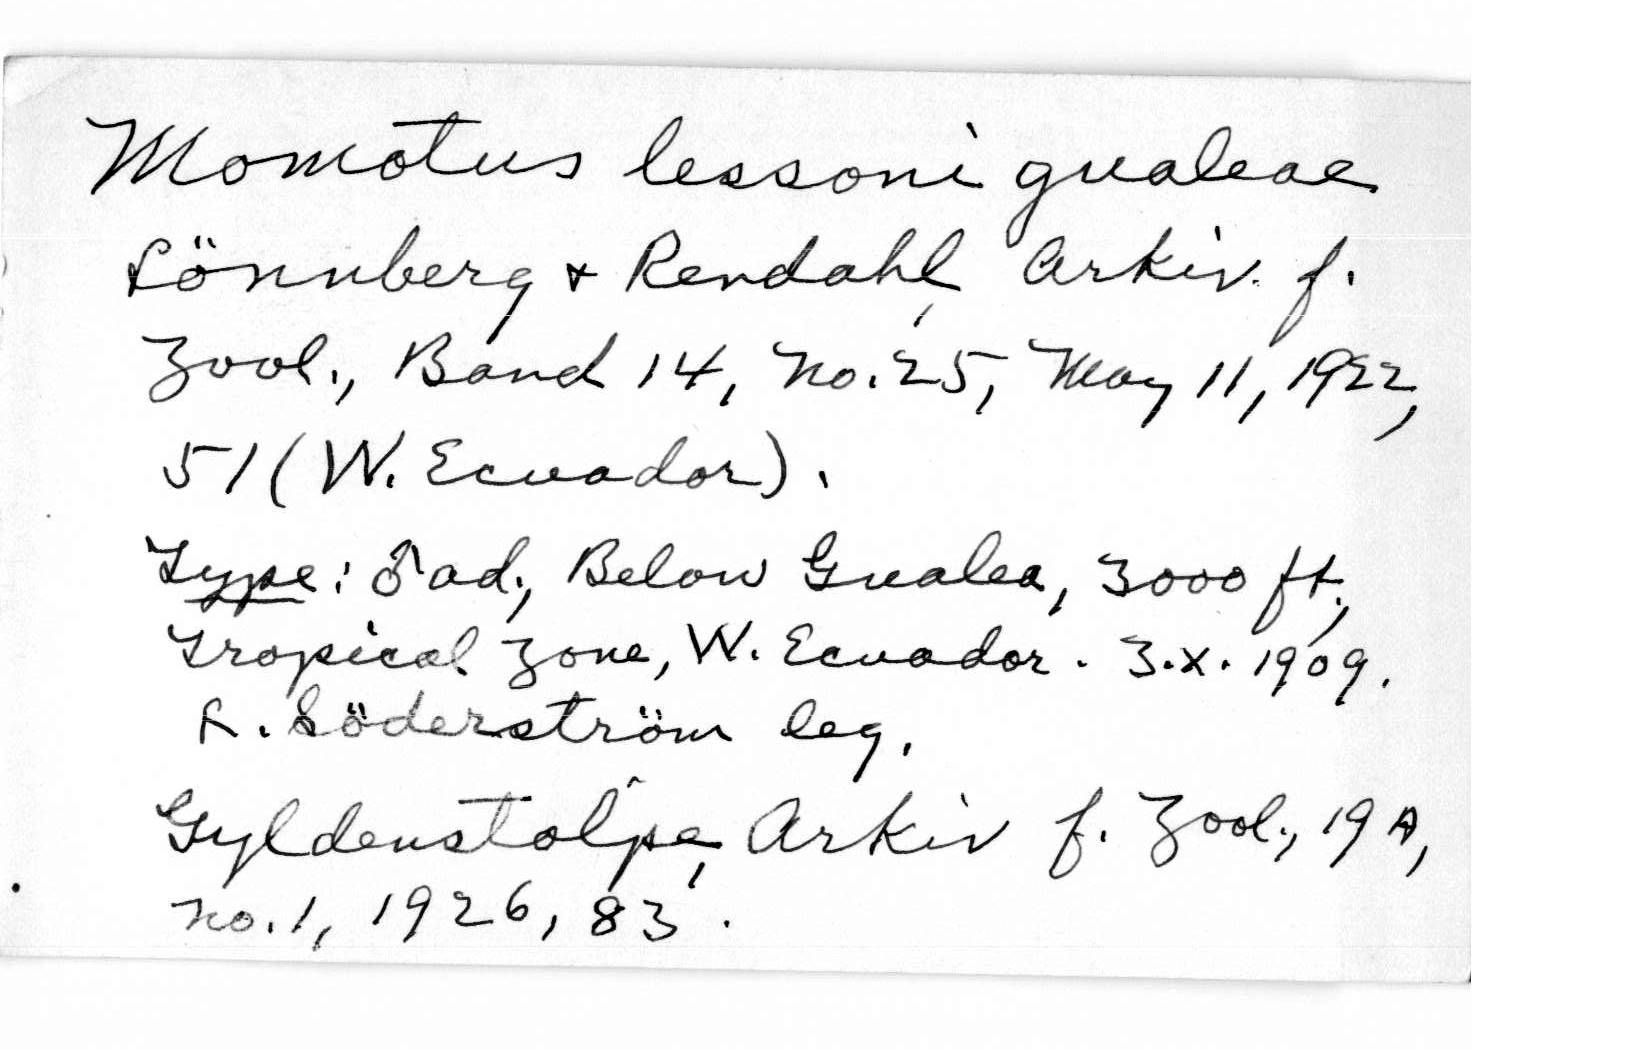 Momotus lessoni gualeae
Lönnberg & Rendahl, Arkiv. f.
Zool., Band 14, No. 25, May 11, 1922,
51 (W. Ecuador).
Type: ♂ ad., Below Gualea, 3000 ft.,
Tropical Zone, W. Ecuador. 3.X.1909.
L. Söderström leg.
Gyldenstolpe, Arkiv f. Zool., 19 A,
No. 1, 1926, 83.